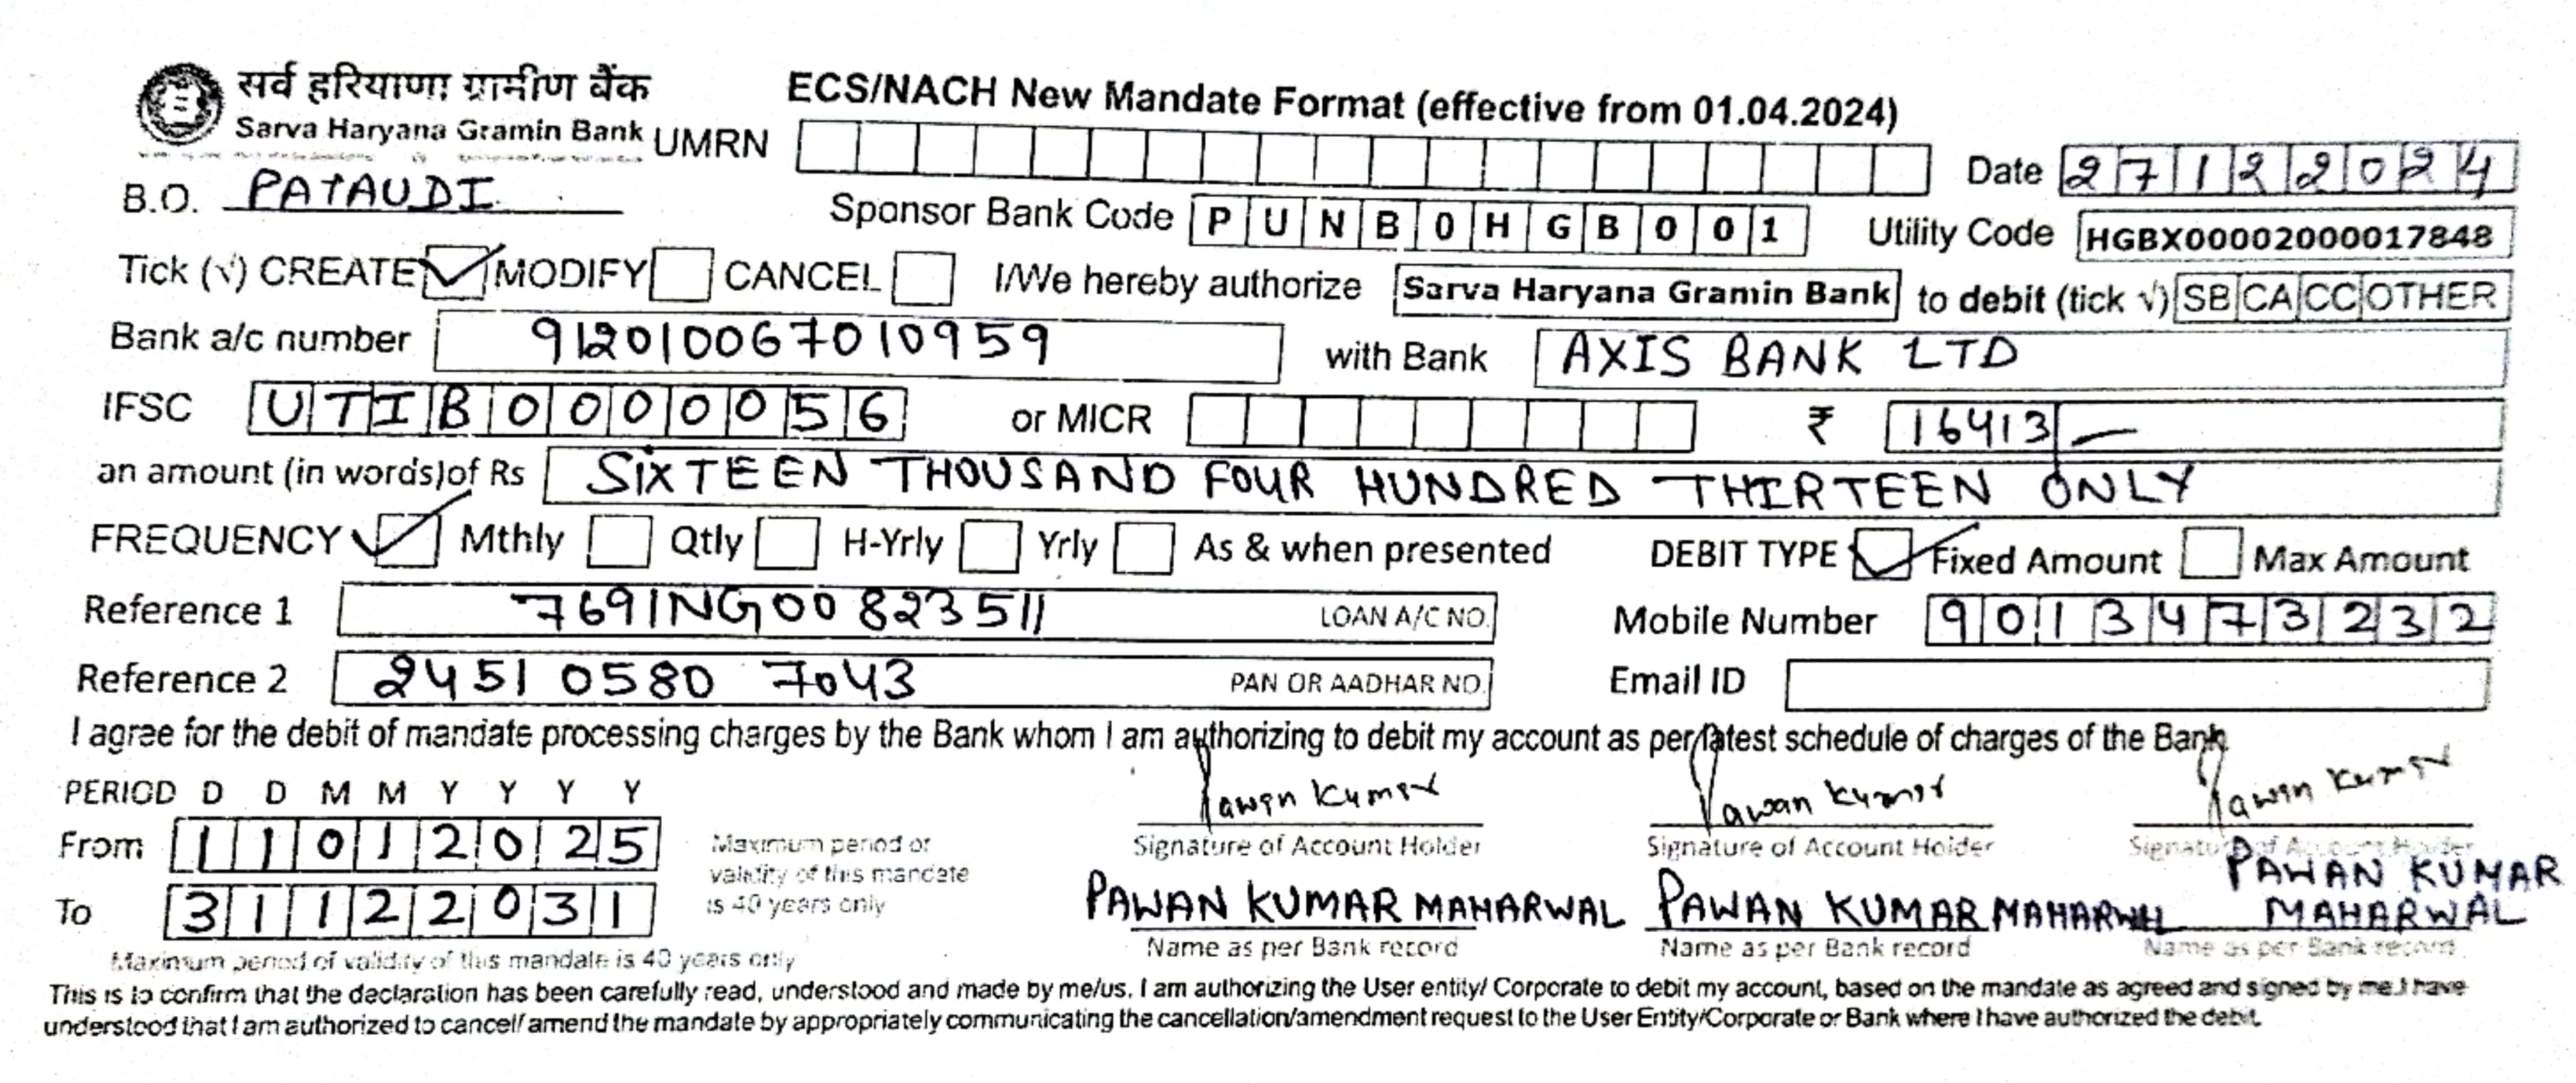 सर्व हरियाणा ग्रामीण बैंक
Sarva Haryana Gramin Bank
ECS/NACH New Mandate Format (effective from 01.04.2024)
UMRN
Date 27122024
B.O. PATAUDI
Sponsor Bank Code PUNB0HGB001
Utility Code HGBX00002000017848
Tick (√) CREATE MODIFY CANCEL I/We hereby authorize Sarva Haryana Gramin Bank to debit (tick √) SB CA CC OTHER
Bank a/c number 912010067010959 with Bank AXIS BANK LTD
IFSC UTIB0000056 or MICR ₹ 16413/—
an amount (in words)of Rs SIXTEEN THOUSAND FOUR HUNDRED THIRTEEN ONLY
FREQUENCY Mthly Qtly H-Yrly Yrly As & when presented DEBIT TYPE Fixed Amount Max Amount
Reference 1 7691NG00823511 LOAN A/C NO. Mobile Number 9013473232
Reference 2 2451 0580 7043 PAN OR AADHAR NO. Email ID
I agree for the debit of mandate processing charges by the Bank whom I am authorizing to debit my account as per latest schedule of charges of the Bank.
PERIOD D D M M Y Y Y Y
From 11012025
To 31122031
Maximum period or
validity of this mandate
is 40 years only
Maximum period of validity of this mandate is 40 years only
Pawan Kumar Pawan Kumar Pawan Kumar
Signature of Account Holder Signature of Account Holder Signature of Account Holder
PAWAN KUMAR MAHARWAL PAWAN KUMAR MAHARWAL PAWAN KUMAR MAHARWAL
Name as per Bank record Name as per Bank record Name as per Bank record
This is to confirm that the declaration has been carefully read, understood and made by me/us. I am authorizing the User entity/ Corporate to debit my account, based on the mandate as agreed and signed by me.I have
understood that I am authorized to cancel/ amend the mandate by appropriately communicating the cancellation/amendment request to the User Entity/Corporate or Bank where I have authorized the debit.